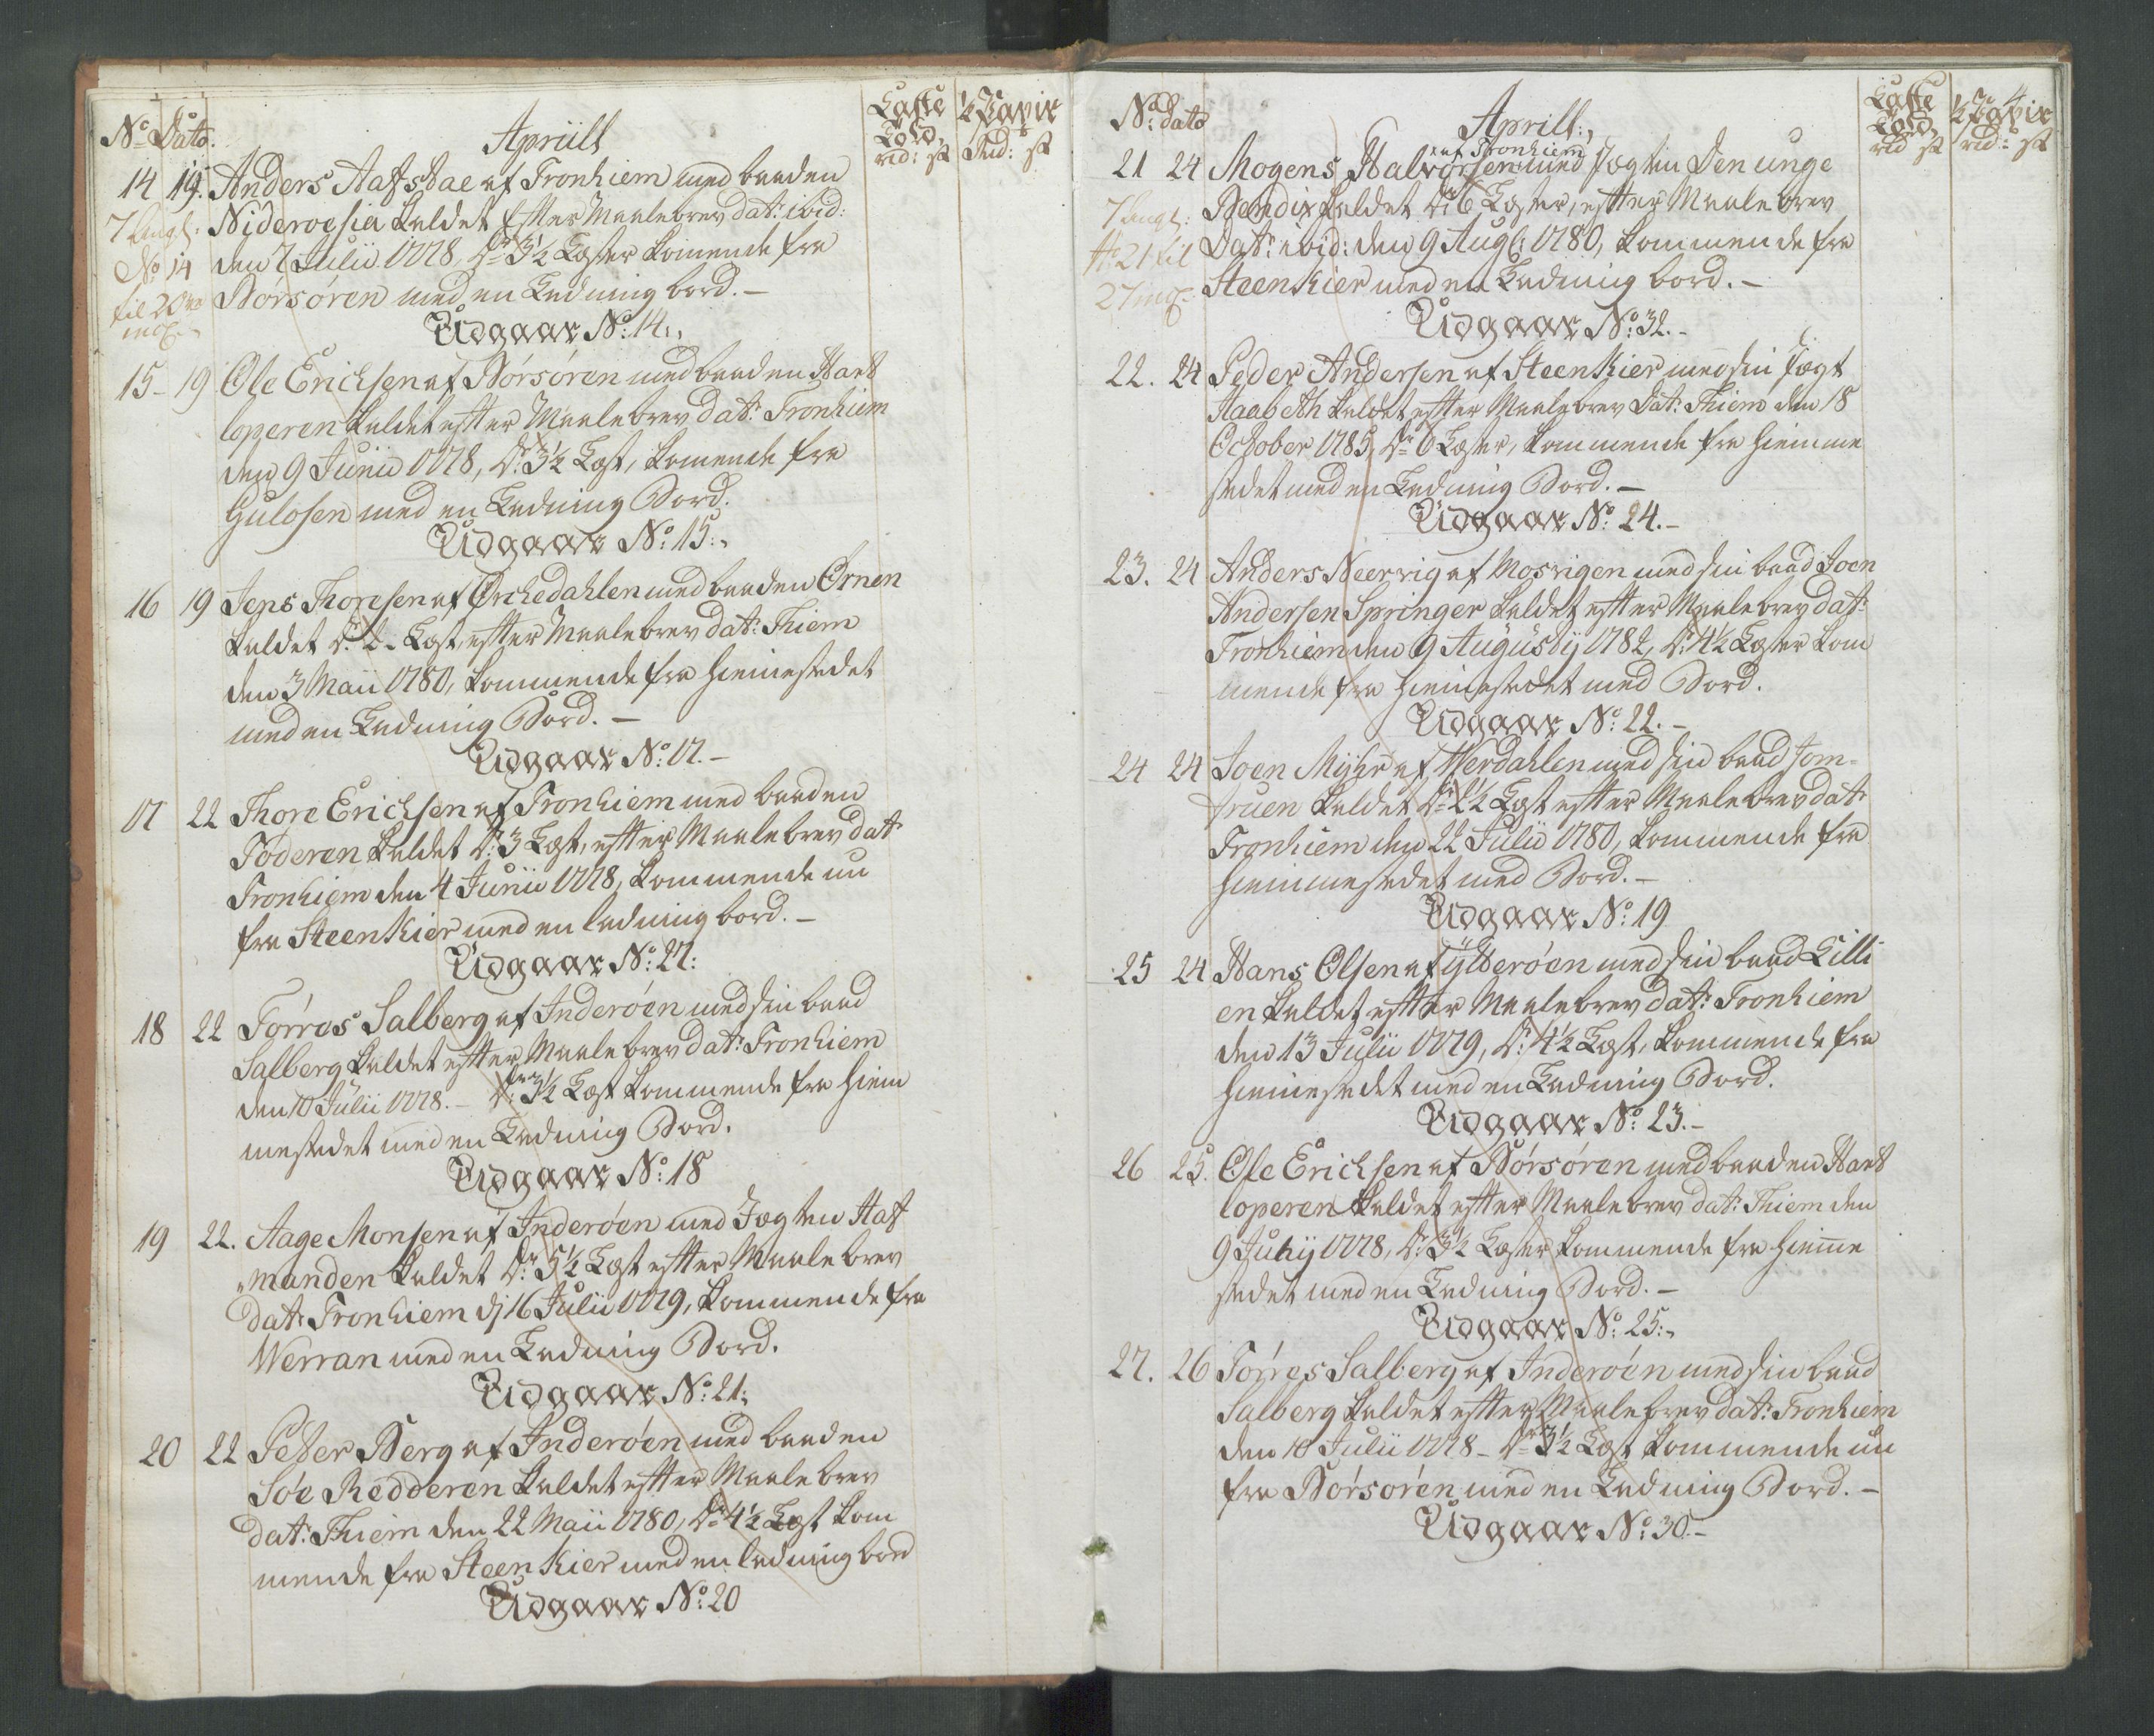 No Dato.
Apriill
Laste Told, rd: s
½ Papir Rd: s
14 19. Anders Aafsta af Tronhiem med baaden
7 Angl: No 14 til 20 incl:
Nideroesia kaldet efter Maalebrev dat: ibid:
den 7 Julii 1778, Dr: 3½ Læster komende fra
Børsøren med en Ladning bord. –
Udgaar No: 14.
15 – 19 Ole Erichsen af Børsøren med baaden Hart
loperen kaldet efter Maalebrev dat: Tronhiem
den 9 Junii 1778, Dr: 3½ Læst, komende fra
Gulosen med en Ladning Bord.
Udgaar No: 15.
16 19 Jens Thoresen af Orchedahlen med baaden Ørnen
kaldet Dr: 2 Læst, efter Maalebrev dat: Thiem
den 3 Maii 1780, kommende fra hiemestedet
med en Ladning Bord. –
Udgaar No: 17. –
17 22 Thore Erichsen af Tronhiem med baaden
Foderen kaldet Dr: 3 Læst, efter Maalebrev dat:
Tronhiem den 4 Junii 1778, kommende nu
fra Steenkier med en ladning bord. –
Udgaar No: 27:
18 22 Torres Salberg af Inderöen med sin baad
Salberg kaldet efter Maalebrev dat: Tronhiem
den 10 Julii 1778. – Dr: 3½ Læst kommende fra hiem
mestedet med en Ladning Bord.
Udgaar No: 18
19 22. Aage Monsen af Inderöen med Jægten Haf
manden kaldet Dr: 5½ Læst efter Maalebrev
dat: Tronhiem dj 16 Julii 1779, kommende fra
Werran med en Ladning Bord.
Udgaar No: 21.
20 22 Peter Berg af Inderöen med baaden
Söe Redderen kaldet efter Maalebrev
dat: Thiem den 22 Maii 1780, Dr: 4½ Læst kom
mende fra Steenkier med en ladning bord
Udgaar No: 20
4
No: dato
Aprill.
Laste Told, rd s
½ Papir rd: s
af Tronhiem
21 24 Mogens Halvorsen med Jægten Den unge
7 Angl: No 21 til 27 incl:
Bendix kaldet Dr: 6 Læster, efter Maalebrev
Dat: ibid: den 9 Aug: 1780, kommende fra
Steenkier med en Ladning bord. –
Udgaar No: 32. –
22. 24 Peder Andersen af Steenkier med sin Jægt
Haabeth kaldet efter Maalebrev Dat: Thiem den 18
October 1785, Dr: 6 Læster, kommende fra hiemme
stedet med en Ladning Bord. –
Udgaar No: 24. –
23. 24 Anders Neervig af Mosvigen med sin baad Joen
Andersen Springer kaldet efter Maalebrev dat:
Tronhiem den 9 Augustij 1782, Dr: 4½ Læster kom
mende fra hiemestedet med Bord.
Udgaar No: 22. –
24 24 Joen Myhr af Werdahlen med sin baad Jom-
fruen kaldet Dr: 2½ Læst efter Maalebrev dat:
Tronhiem den 22 Julii 1780, kommende fra
hiemmestedet med Bord. –
Udgaar No: 19
25 24 Hans Olsen af Ytterøen med sin baad Lilli
en kaldet efter Maalebrev dat: Tronhiem
den 13 Julii 1779, Dr: 4½ Læst, kommende fra
hiemestedet med en Ladning Bord.
Udgaar No: 23. –
26 25. Ole Erichsen af Børsøren med baaden Hart
loperen kaldet efter Maalebrev dat: Thiem den
9 Julij 1778, Dr: 3½ Læster kommende fra hieme
stedet med en Ladning Bord. –
Udgaar No: 25.
27. 26 Törres Salberg af Inderöen med sin baad
Salberg kaldet efter Maalebrev dat: Tronhiem
den 10 Julii 1778 – Dr: 3½ Læst kommende nu
fra Börsören med en Ladning Bord. –
Udgaar No: 30. –